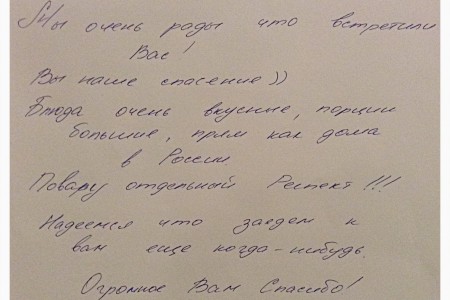 Мы очень рады что встретили
Вас!
Вы наше спасение))
Блюда очень вкусные, порции
большие, прям как дома
в России.
Повару отдельный Респект!!!
Надеемся что заедем к
вам еще когда-нибудь.
Огромное Вам Спасибо!